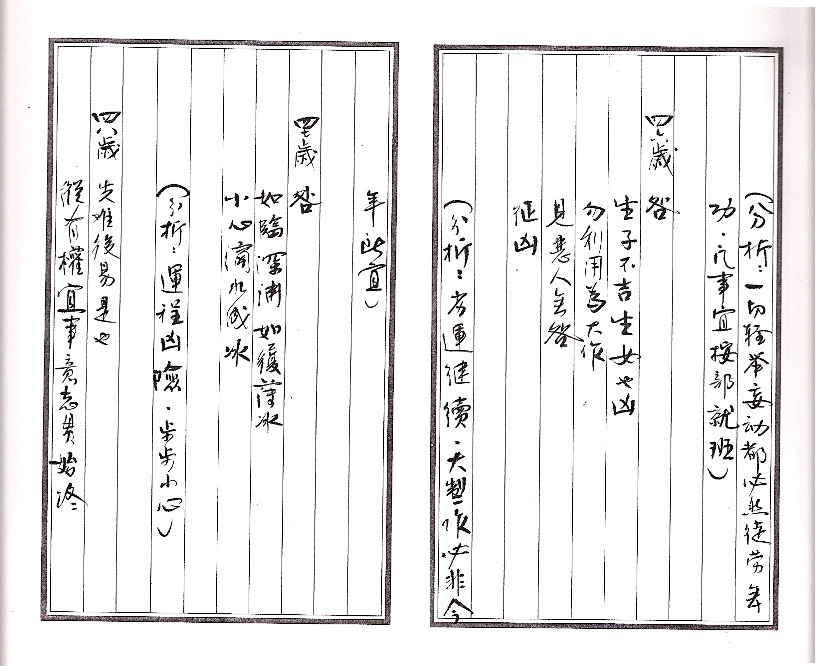 (分析：一切輕举妄動都必然徒劳無
功．凡事宜按部就班)
四六歲 咎
生子不吉生女也凶
勿利用為大作
見惡人無咎
征凶
(分析：劣運继續．大製作必非今
年所宜)
四七歲 咎
如臨深渊如履薄冰
小心滴水成冰
(分析：運程凶險．步步小心)
四八歲 先难後易是也
經有權宜事意志貫始终